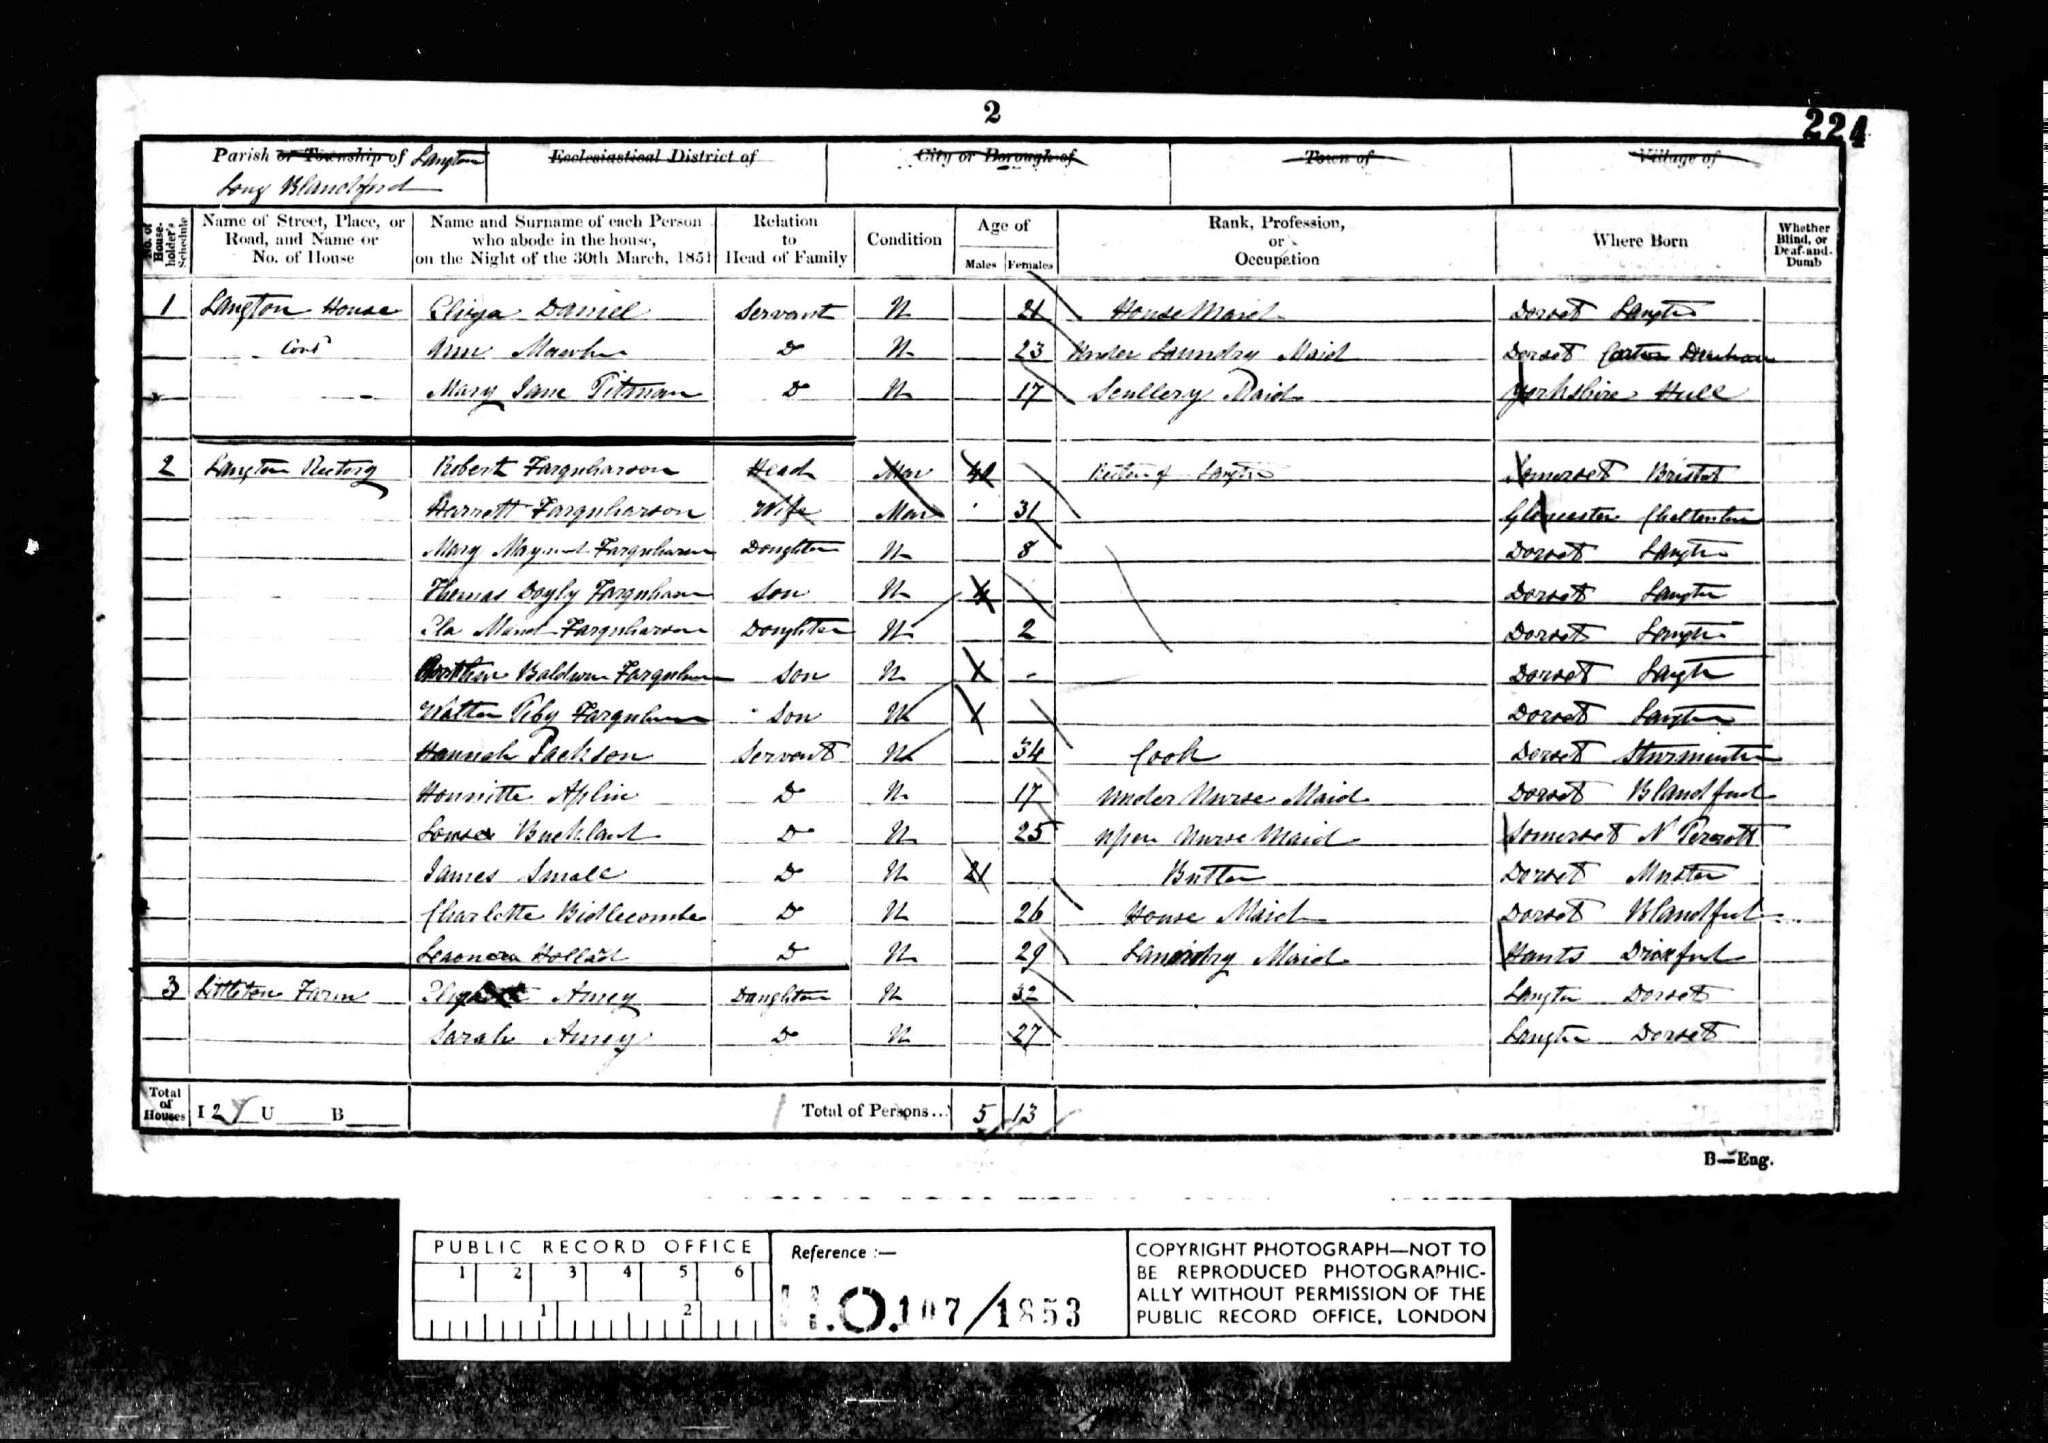 2
224
Parish or Township of Langton Long Blandford
Ecclesiastical District of
City or Borough of
Town of
Village of
No. of House-holder's Schedule
Name of Street, Place, or Road, and Name or No. of House
Name and Surname of each Person who abode in the house, on the Night of the 30th March, 1851
Relation to Head of Family
Condition
Age of
Males Females
Rank, Profession, or Occupation
Where Born
Whether Blind, or Deaf-and-Dumb
1 Langton House Eliza Daniel Servant U 21 House Maid Dorset Langton
Cont Ann D U 23 Under Laundry Maid Dorset
Mary Jane Pitman D U 17 Scullery Maid Yorkshire Hull
2 Langton Rectory Robert Farquharson Head Mar Rector of Langton Somerset Bristol
Harrett Farquharson Wife Mar 31 Gloucester Cheltenham
Mary Farquharson Daughter U 8 Dorset Langton
Thomas Doyly Farquharson Son U 4 Dorset Langton
Ela Farquharson Daughter U 2 Dorset Langton
Baldwin Farquharson Son U - Dorset Langton
Walter Farquharson Son U Dorset Langton
Hannah Jackson Servant U 34 Cook Dorset Sturminster
Aplin D U 17 Under Nurse Maid Dorset Blandford
Louisa Buckland D U 25 Upper Nurse Maid Somerset N Perrott
James Small D U 21 Butler Dorset
Charlotte Bidlecombe D U 26 House Maid Dorset Blandford
Leonora Holland D U 29 Laundry Maid Hants
3 Littleton Farm Amey Daughter U 32 Langton Dorset
Sarah Amey D U 27 Langton Dorset
Total of Houses I 2 U B Total of Persons... 5 13
B—Eng.
PUBLIC RECORD OFFICE
1 2 3 4 5 6
1 2
Reference :—
H.O. 107/1853
COPYRIGHT PHOTOGRAPH—NOT TO
BE REPRODUCED PHOTOGRAPHIC-
ALLY WITHOUT PERMISSION OF THE
PUBLIC RECORD OFFICE, LONDON